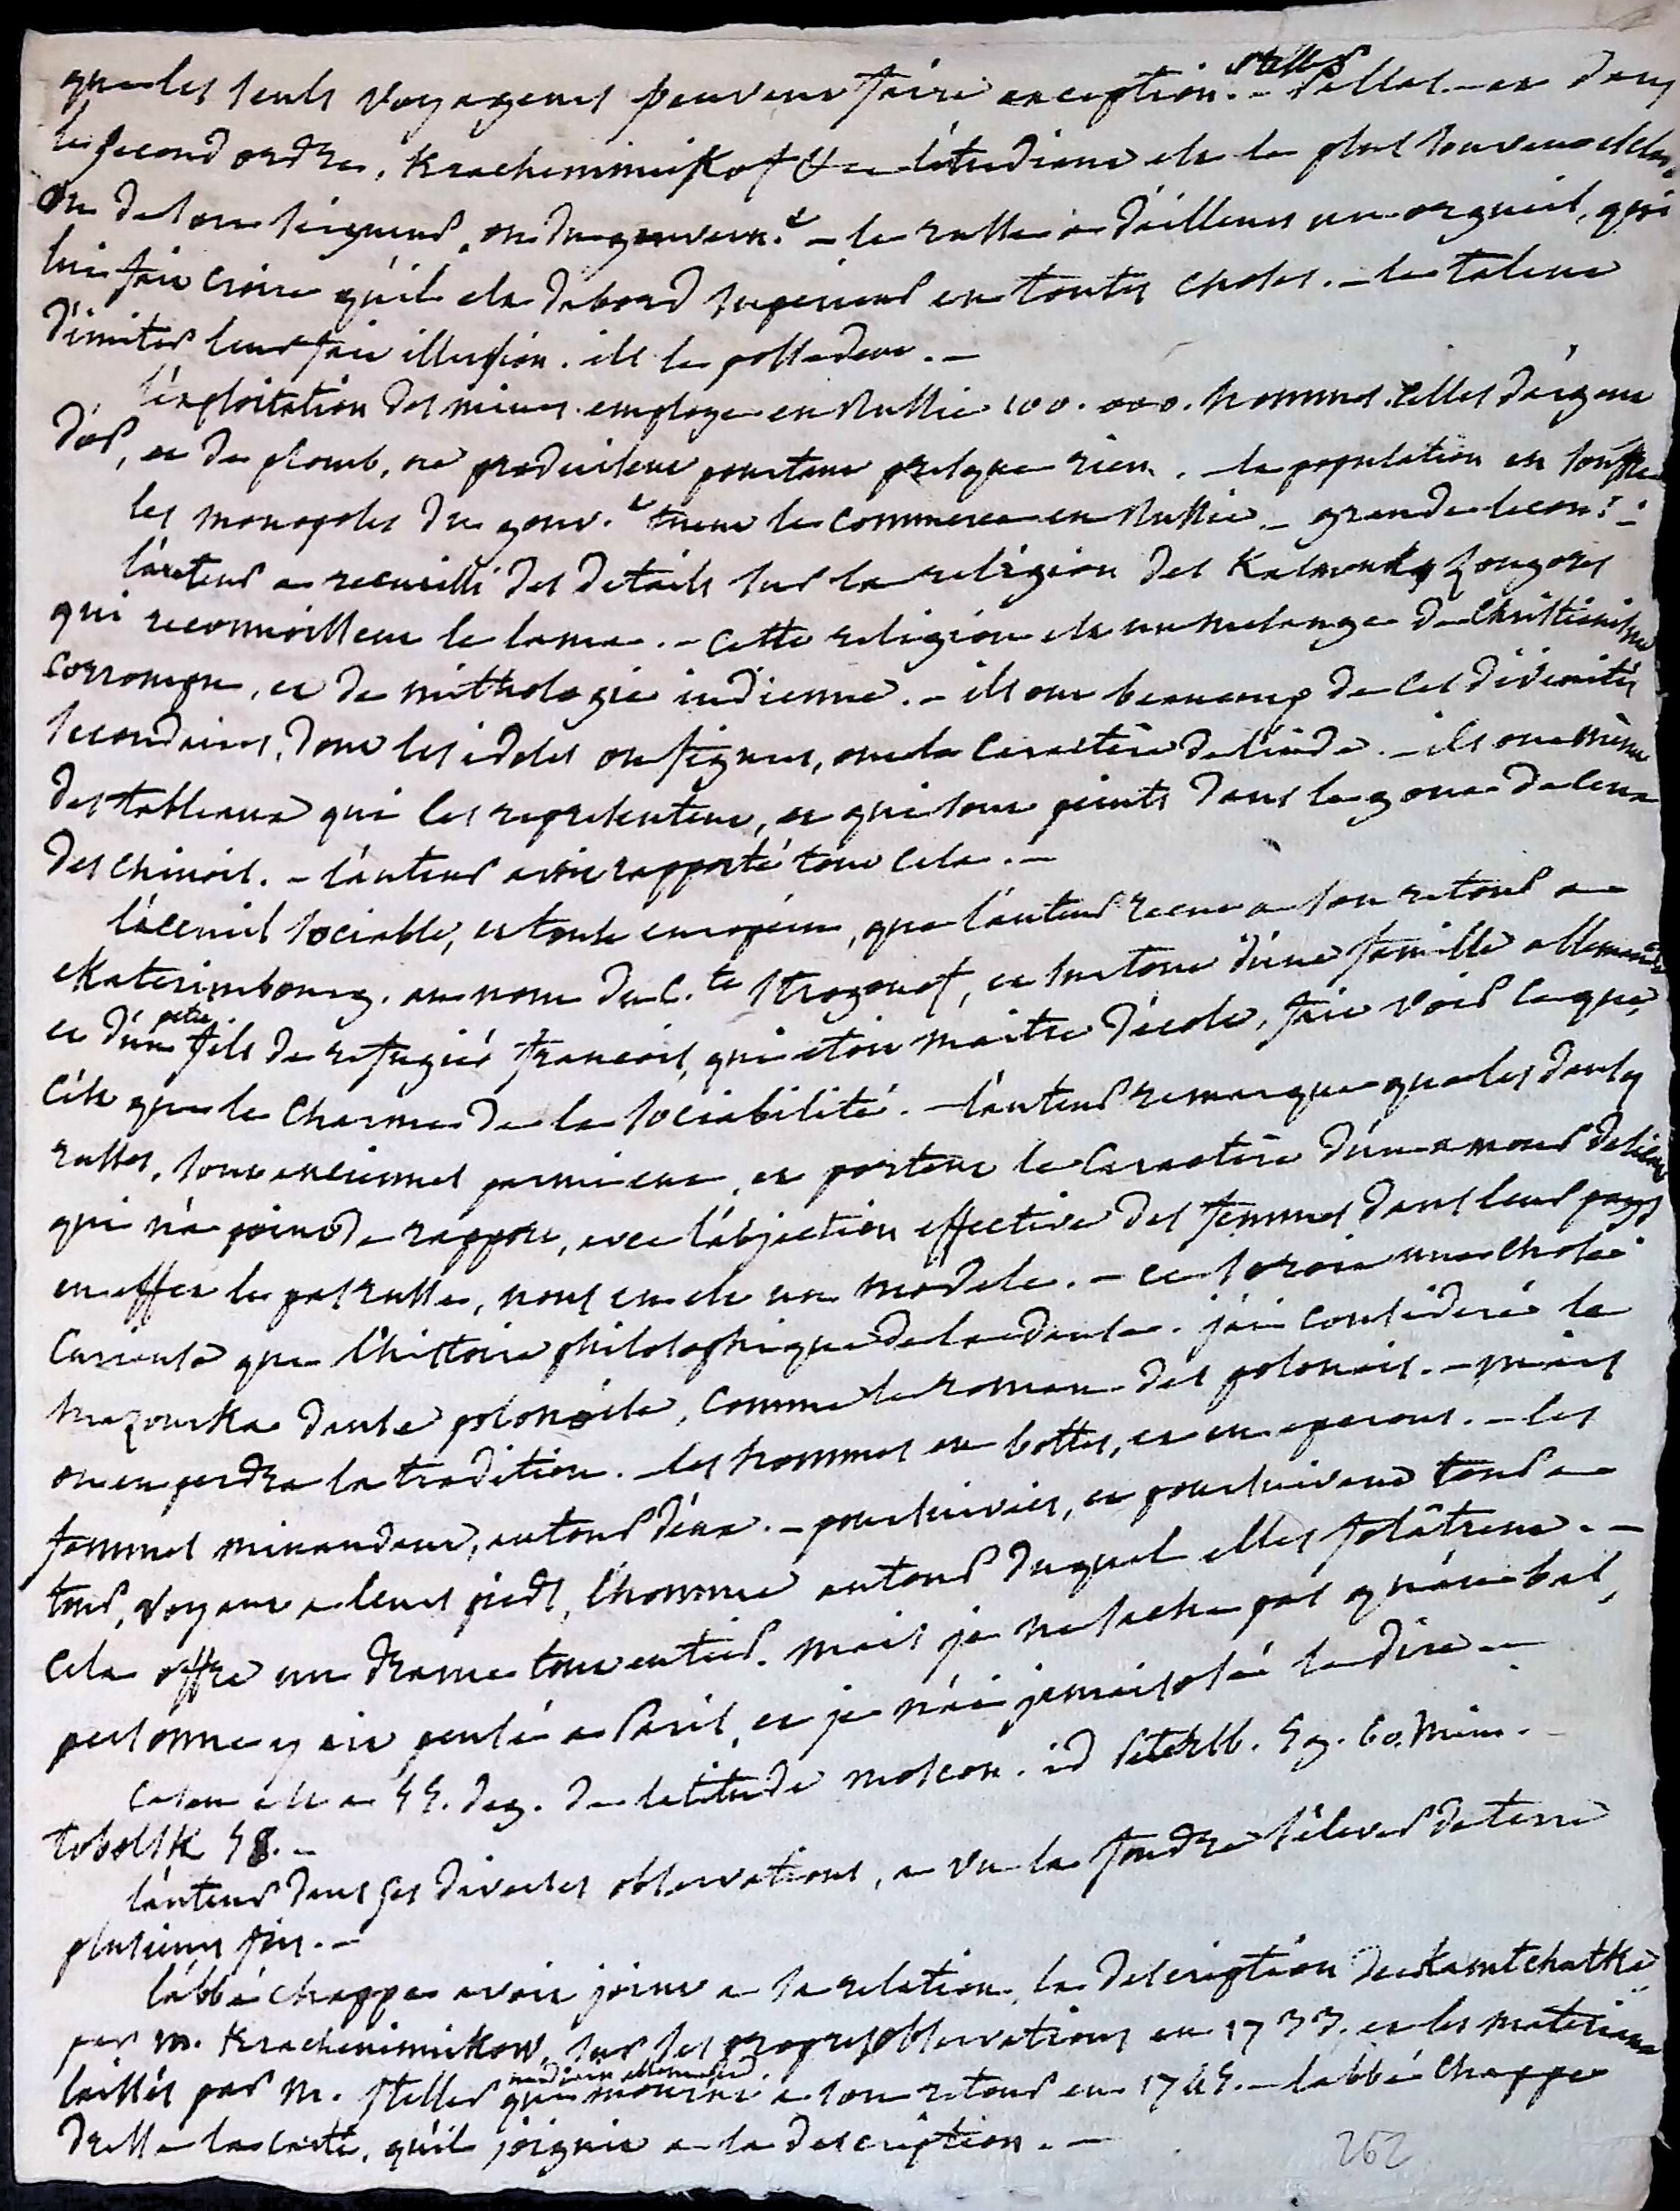 que les seuls voyageurs peuvent faire exception. - Steller Pallas. - et dans
le second ordre, Kracheninnikof &c - l'étudiant est le plus souvent esclave
ou de son seigneur, ou du gouvern.t - le russe a d'ailleurs un orgueil, qui
lui fait croire qu'il est d'abord superieur en toutes choses. - le talent
d'imiter leur fait illusion. ils le possedent. -
l'exploitation des mines employe en Russie 100.000. hommes. celles d'argent
d'or, et de plomb, ne produisent pourtant presque rien. - la population en souffre
les monopoles du gouv.t tuent le commerce en Russie - grande lecon! -
l'auteur a recueilli des details sur la religion des Kalmouks zongores
qui reconnoissent le lama. - cette religion est un melange de christianisme
corrompu, et de mithologie indienne. - ils ont beaucoup de ces divinités
secondaires, dont les idoles ou figures, ont le caractère de l'inde. - ils ont même
des tableaux qui les representent, et qui sont peints dans le gout de ceux
des chinois. - l'auteur avoit rapporté tout cela. -
l'accueil sociable, et tout européen, que l'auteur recut a son retour a
ekaterinbourg. au nom du C.te Strogonof, et surtout d'une famille allemande
et d'un petit fils de refugié francois, qui etoit maitre d'ecole, fait voir ce que
c'est que le charme de la sociabilité. - l'auteur remarque que les danses
russes, sont anciennes parmi eux, et portent le caractère d'un amour delicat
qui n'a point de rapport, avec l'abjection effective des femmes dans leur pays
en effet le pas russe, nous en est un modele. - ce seroit une chose
curieuse que l'histoire philosophique de la danse. j'ai consideré la
mazourka danse polonoise, comme le roman des polonois. - mais
on en perdra la tradition. - les hommes en bottes, et en eperons. - les
femmes minaudant, autour d'eux. - poursuivies, et poursuivant tour a
tour, voyant a leurs pieds, l'homme autour duquel elles folâtrent. -
cela offre un drame tout entier. mais je ne sache pas qu'au bal,
personne y ait pensé a Paris, et je n'ai jamais osé le dire -
Casan est a 55. deg. de latitude moscou. id Petersb. 59. 60. Min. -
tobolsk 58. -
l'auteur dans ses diverses observations, a vu la foudre s'elever de terre
plusieurs fois. -
l'abbé chappe avoit joint a sa relation, la description du kamtchatka
par m. Kracheninnikow, sur ses propres observations en 1733. et les materiaux
laissés par M. Steller médecin allemand qui mourut a son retour en 1745. - l'abbé Chappe
dressa la carte, qu'il joignit a la description. -
262